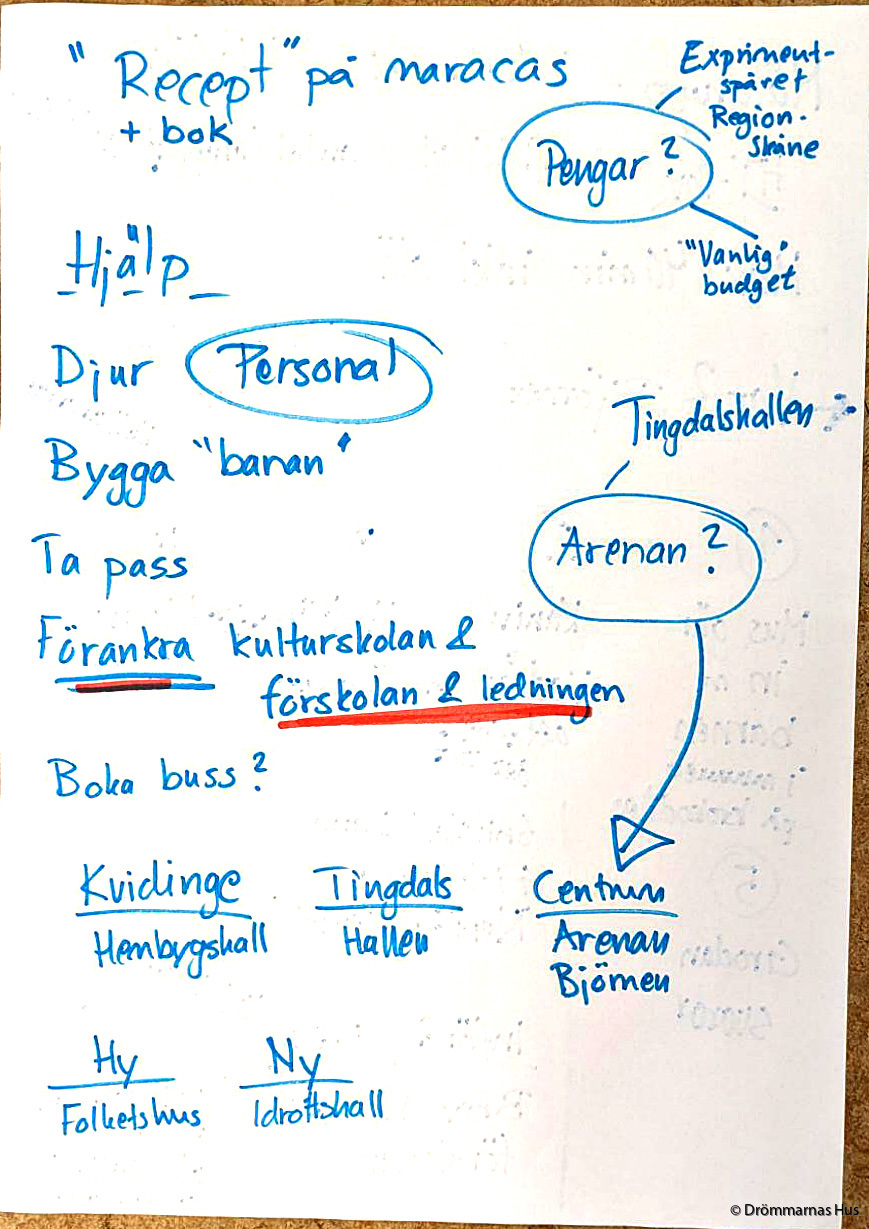 "Recept" på maracas
+ bok
Expriment-
spåret
Region-
Skåne
Pengar?
"Vanlig"
budget
Hjälp
Djur Personal
Bygga "banan"
Tingdalshallen
Arenan?
Ta pass
Förankra kulturskolan &
förskolan & ledningen
Boka buss?
Kvidinge
Hembygshall
Tingdals
Hallen
Centrum
Arenan
Björnen
Hy
Folketshus
Ny
Idrottshall
© Drömmarnas Hus